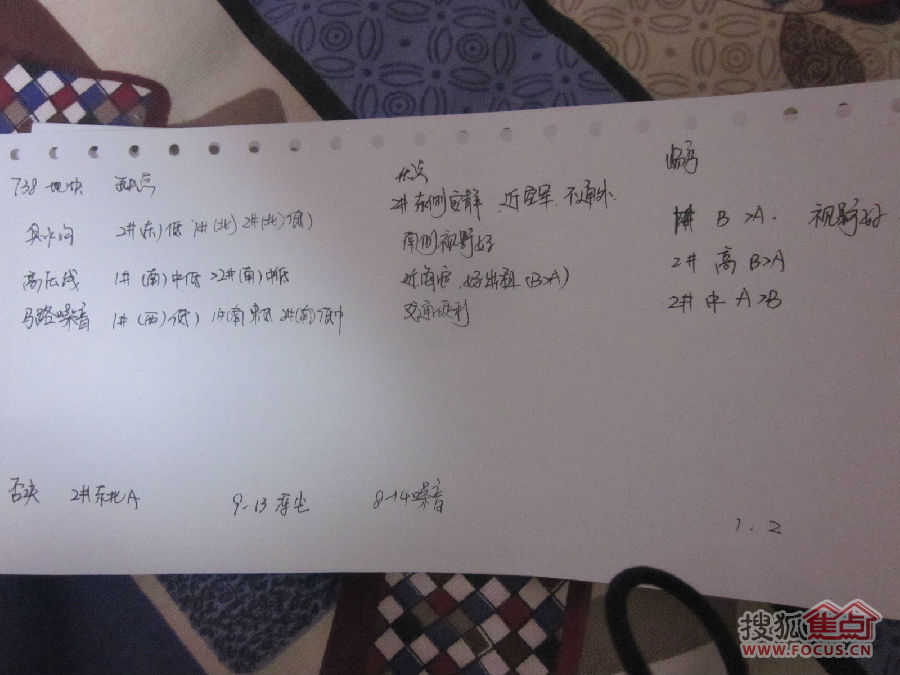 738地块 缺点 优点 临高
2#东侧安静 近空军
臭水沟 2#(东)低 1#(北) 2#(北)低) 南侧视野好 1# B>A. 视野好
高压线 1#(南)中低>2#(南)中低 好出租 (B>A) 2# 高 B>A
马路噪音 1#(西)低) 1#(南) 2#(南)低中 交通便利 2# 中 A>B
否决 2#东北A 9-13 浮尘 8-14噪音
1、2
搜狐焦点
WWW.FOCUS.CN